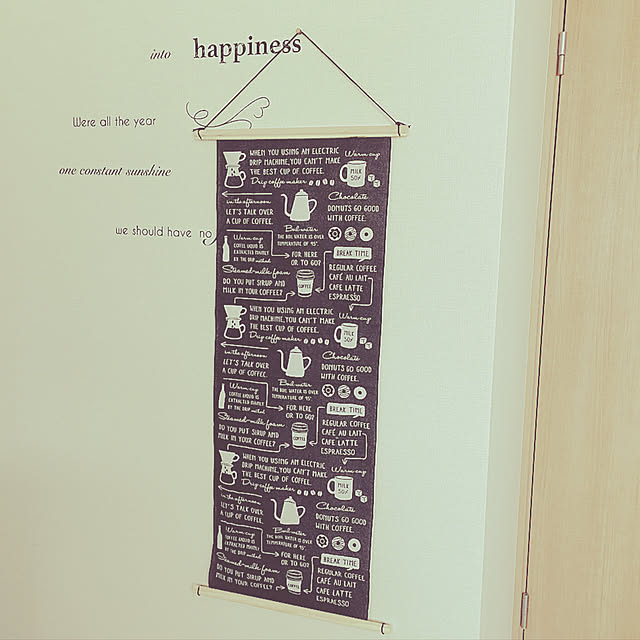 into happiness
Were all the year
one constant sunshine
we should have no
WHEN YOU USING AN ELECTRIC
DRIP MACHINE, YOU CAN'T MAKE
THE BEST CUP OF COFFEE.
Drip coffee maker
Warm cup
MILK
50%
in the afternoon
LET'S TALK OVER
A CUP OF COFFEE.
Chocolate
DONUTS GO GOOD
WITH COFFEE.
Boil water
THE BOIL WATER IS OVER
TEMPERATURE OF 95°.
Warm cup
COFFEE LIQUID IS
EXTRACTED MAINLY
BY THE DRIP method
FOR HERE
OR TO GO?
BREAK TIME
Steamed-milk foam
DO YOU PUT SIRUP AND
MILK IN YOUR COFFEE?
COFFEE
REGULAR COFFEE
CAFÉ AU LAIT
CAFE LATTE
ESPRESSO
WHEN YOU USING AN ELECTRIC
DRIP MACHINE, YOU CAN'T MAKE
THE BEST CUP OF COFFEE.
Drip coffee maker
Warm cup
MILK
50%
in the afternoon
LET'S TALK OVER
A CUP OF COFFEE.
Chocolate
DONUTS GO GOOD
WITH COFFEE.
Boil water
THE BOIL WATER IS OVER
TEMPERATURE OF 95°.
Warm cup
COFFEE LIQUID IS
EXTRACTED MAINLY
BY THE DRIP method
FOR HERE
OR TO GO?
BREAK TIME
Steamed-milk foam
DO YOU PUT SIRUP AND
MILK IN YOUR COFFEE?
COFFEE
REGULAR COFFEE
CAFÉ AU LAIT
CAFE LATTE
ESPRESSO
WHEN YOU USING AN ELECTRIC
DRIP MACHINE, YOU CAN'T MAKE
THE BEST CUP OF COFFEE.
Drip coffee maker
Warm cup
MILK
50%
in the afternoon
LET'S TALK OVER
A CUP OF COFFEE.
Chocolate
DONUTS GO GOOD
WITH COFFEE.
Boil water
THE BOIL WATER IS OVER
TEMPERATURE OF 95°.
Warm cup
COFFEE LIQUID IS
EXTRACTED MAINLY
BY THE DRIP method
FOR HERE
OR TO GO?
BREAK TIME
Steamed-milk foam
DO YOU PUT SIRUP AND
MILK IN YOUR COFFEE?
COFFEE
REGULAR COFFEE
CAFÉ AU LAIT
CAFE LATTE
ESPRESSO